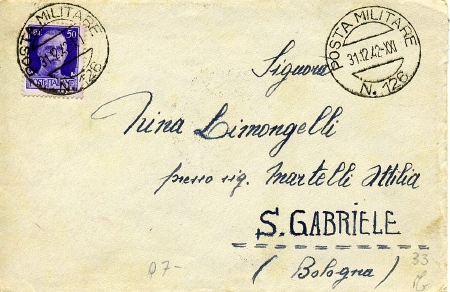 POSTA MILITARE
50
31.12.42
N. 126
POSTA MILITARE
31.12.42-XXI
N. 126
Signora
Nina Limongelli
presso sig. Martelli Attilia
S. GABRIELE
(Bologna)
33